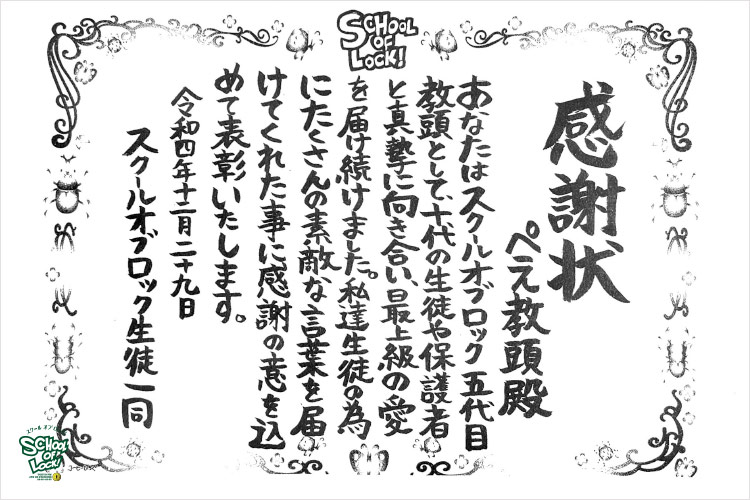 SCHOOL
OF
LOCK!
感謝状
ぺえ教頭殿
あなたはスクールオブロック五代目
教頭として、十代の生徒や保護者
と真摯に向き合い、最上級の愛
を届け続けました。私達生徒の為
にたくさんの素敵な言葉を届
けてくれた事に感謝の意を込
めて表彰いたします。
令和四年十二月二十九日
スクールオブロック生徒一同
スクール オブ ロック!
SCHOOL
OF
LOCK!